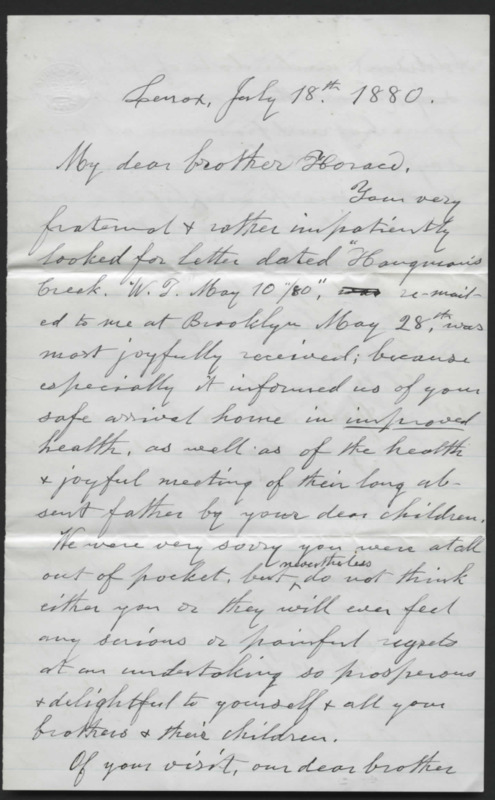 Lenox, July 18.th 1880.
My dear brother Horace.
Your very
fraternal & rather impatiently
looked for letter dated "Hangman's
Creek. W. T. May 10"/80", re-mail-
ed to me at Brooklyn May 28,th was
most joyfully received; because
especially it informed us of your
safe arrival home in improved
health, as well as of the health
& joyful meeting of their long ab-
sent father by your dear children.
We were very sorry you were at all
out of pocket, but nevertheless do not think
either you or they will ever feel
any serious or painful regrets
at an undertaking so prosperous
& delightful to yourself & all your
brothers & their children.
Of your visit, our dear brother